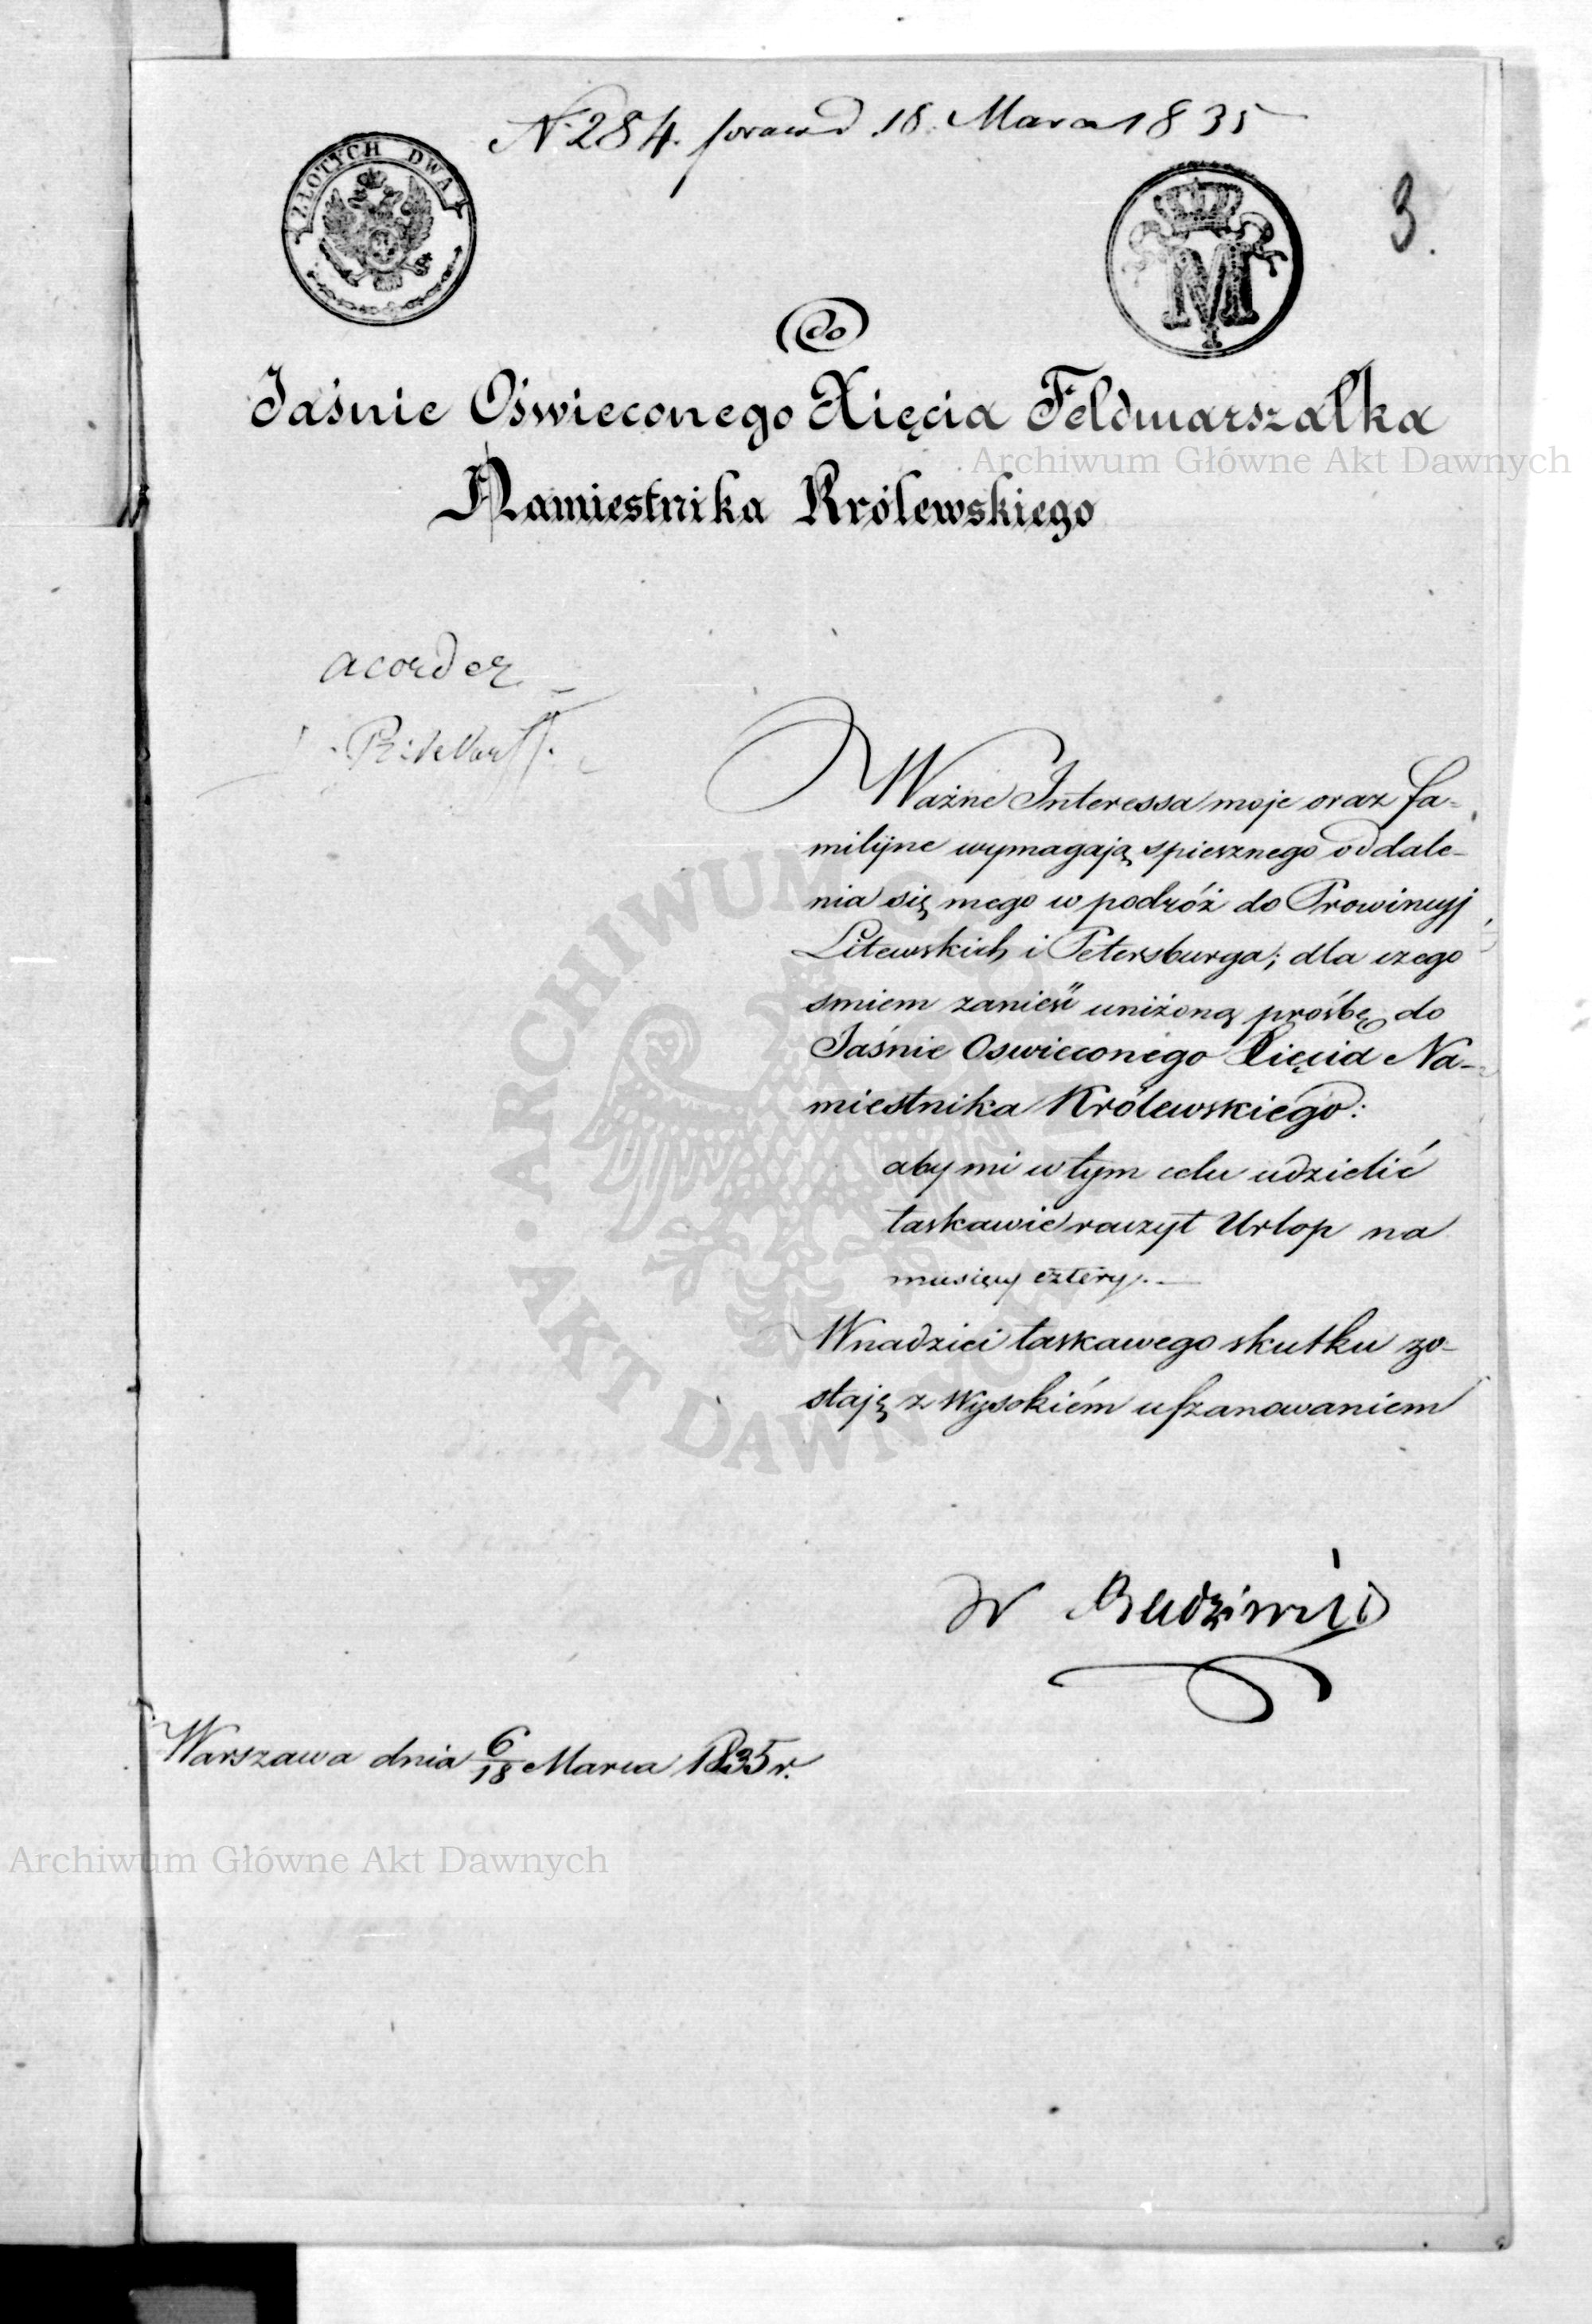 N. 284. 18. Marca 1835
ZŁOTYCH DWA
M
3.
do
Jaśnie Oświeconego Xięcia Feldmarszałka
Archiwum Główne Akt Dawnych
Namiestnika Królewskiego
acorder
Ważne Interessa moje oraz fa=
milijne wymagają spiesznego oddale-
nia się mego w podróż do Prowincyj
Litewskich i Petersburga; dla czego
smiem zanieść uniżoną prośbę do
Jaśnie Oswieconego Xięcia Na-
miestnika Królewskiego:
aby mi w tym celu udzielić
łaskawie raczył Urlop na
miesięcy cztery.—
W nadziei łaskawego skutku zo-
staję z Wysokiém uszanowaniem
ARCHIWUM GŁÓWNE AKT DAWNYCH
W Radziwił
Warszawa dnia 6/18 Marca 1835 r.
Archiwum Główne Akt Dawnych